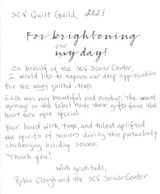 SCV Quilt Guild, 2021
For brightening
our
my day!
On behalf of the SCV Senior Center,
I would like to express our deep appreciation
for the quilted items.
Each was very beautiful and creative. The warm
message on the label made these gifts from the
heart even more special.
Your hard work, time, and talent uplifted
the spirits of seniors during this particularly
challenging holiday season.
Thank you!
With gratitude,
Robin Clough and the SCV Senior Center